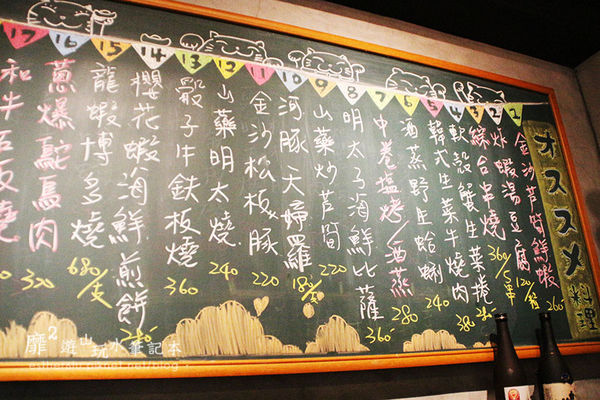 オススメ料理
1 金沙芦筍鮮蝦 260
2 炸蝦湯豆腐 120
3 綜合串燒 360/5串
4 軟殼蟹生菜捲
5 韓式生菜牛燒肉 380
6 酒蒸野生蛤蜊 240
7 中卷塩烤/酒蒸 280
8 明太子海鮮比薩 360
9 山藥炒芦筍 220
10 河豚天婦羅 180
11 金沙松板豚 220
12 山藥明太燒 240
13 骰子牛鐵板燒 360
14 櫻花蝦海鮮煎餅
15 龍蝦博多燒 680/支
16 蔥爆鴕鳥肉 320
17 和牛 板燒
靡²遊山玩水筆記本